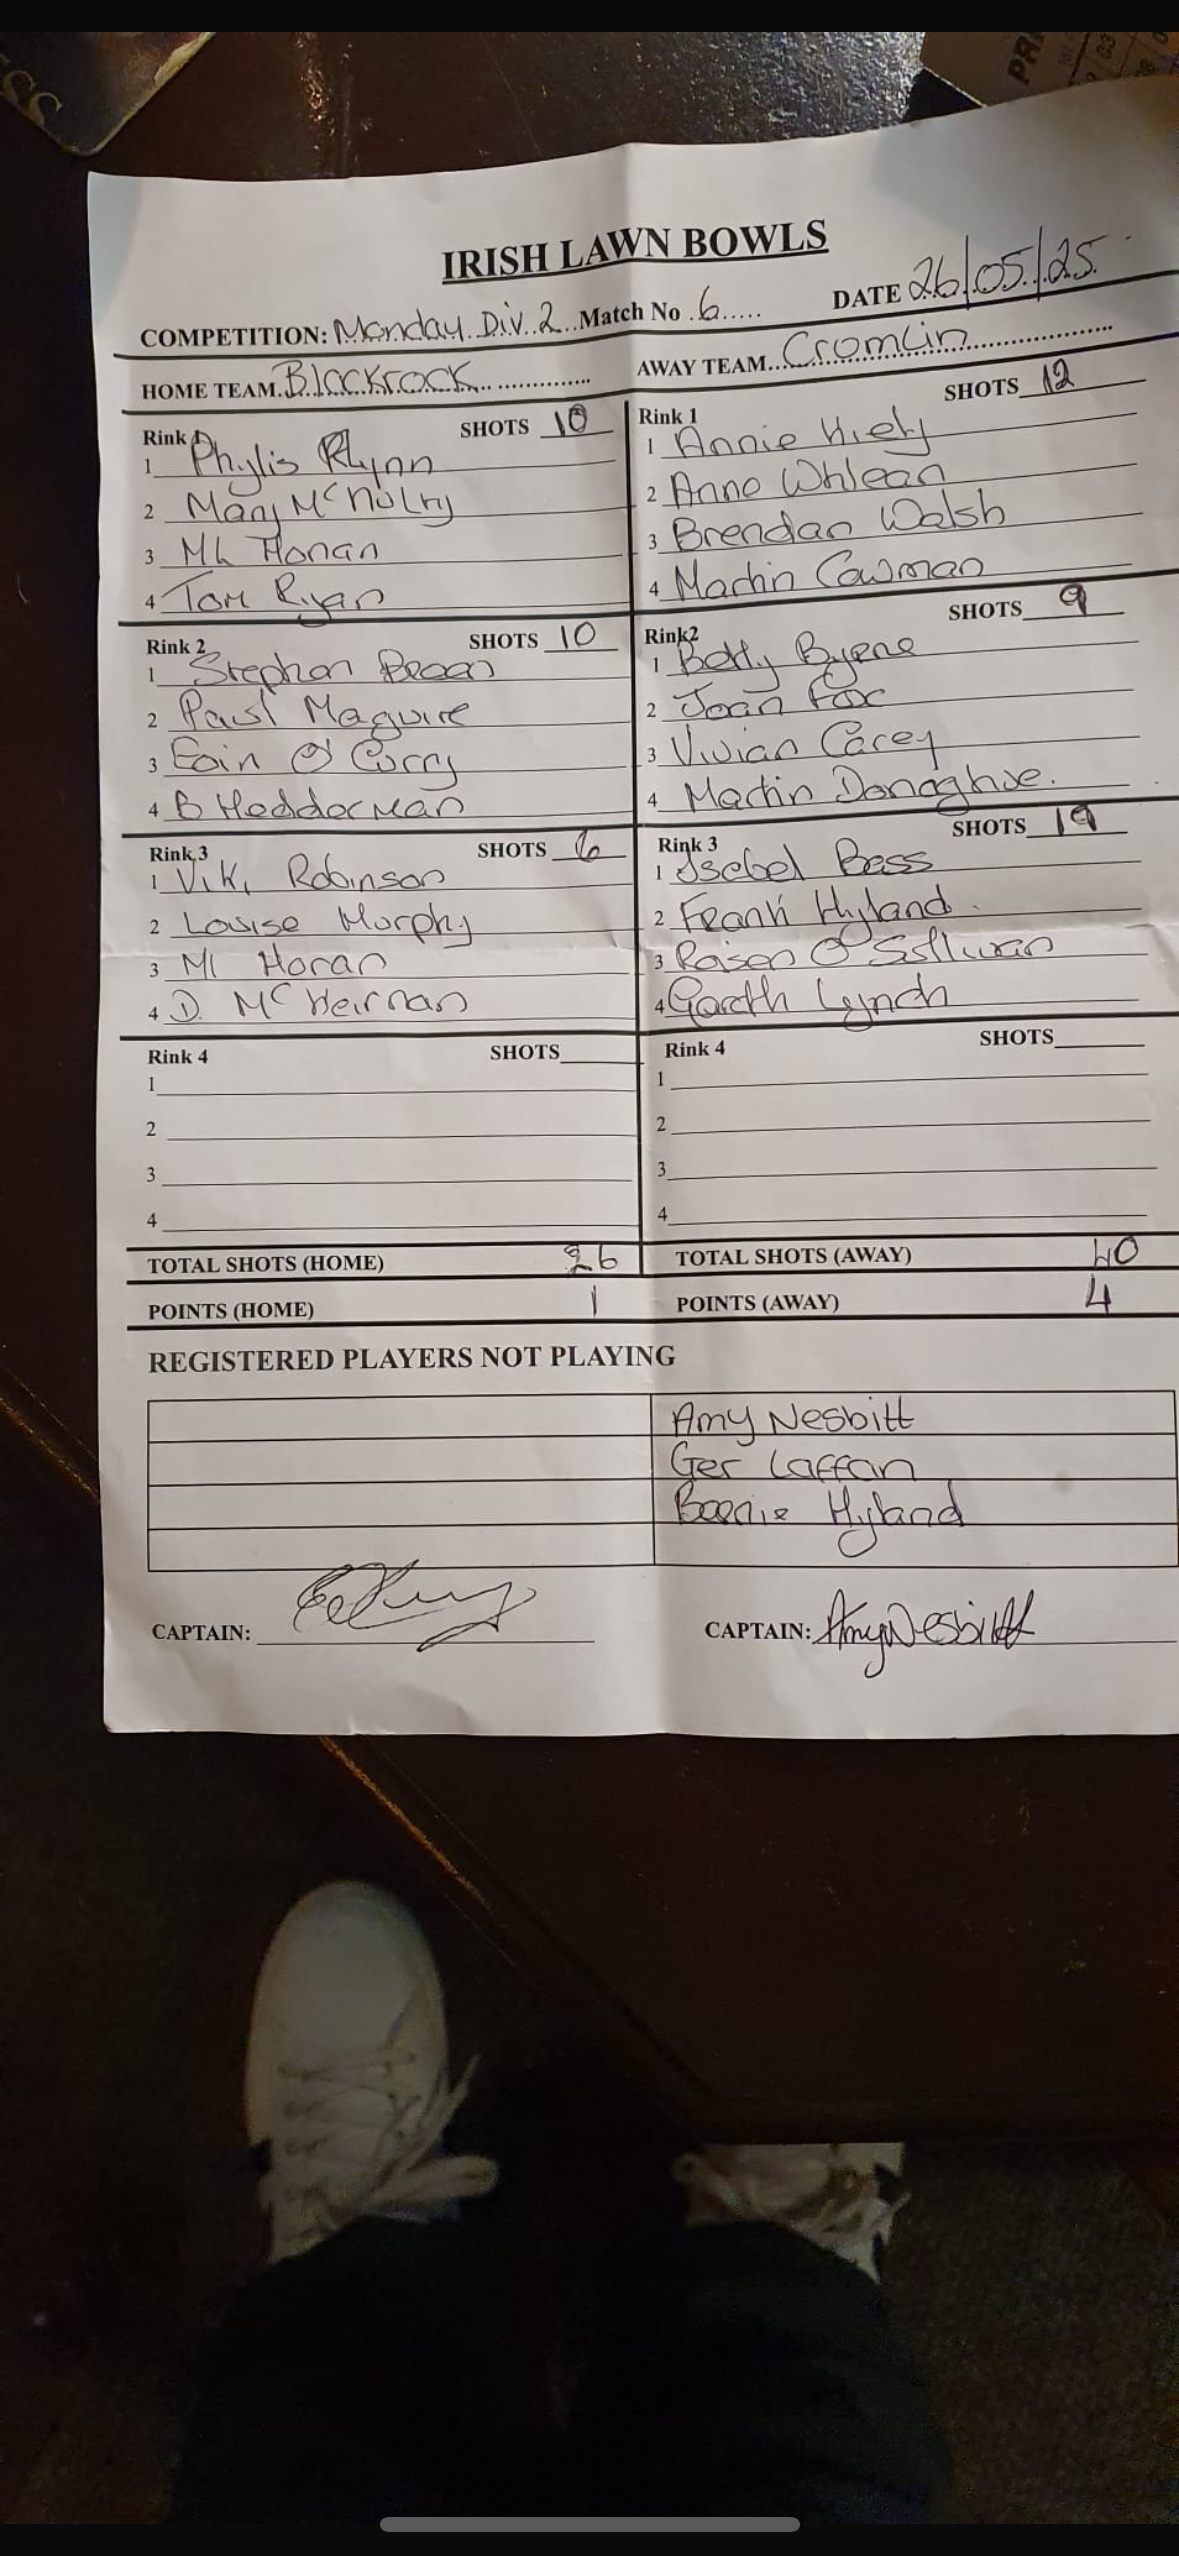 PRI
03
IRISH LAWN BOWLS
COMPETITION: Monday Div. 2 Match No 6 DATE 26/05/25
HOME TEAM Blackrock AWAY TEAM Cromlin
Rink 1 SHOTS 10
1 Phylis Flynn
2 Mary McNulty
3 ML Honan
4 Tom Ryan
Rink 1 SHOTS 12
1 Annie Kiely
2 Anne Whlean
3 Brendan Walsh
4 Martin Cowman
Rink 2 SHOTS 10
1 Stephen
2 Paul Maguire
3 Eoin O'Curry
4 B Hedderman
Rink2 SHOTS 9
1 Betty Byrne
2 Joan Fox
3 Vivian Carey
4 Martin Donaghue.
Rink 3 SHOTS 6
1 Viki Robinson
2 Louise Murphy
3 Ml Horan
4 D. McKeirnan
Rink 3 SHOTS 19
1 Isebel Bass
2 Frank Hyland
3 Roisen O'Sullivan
4 Garth Lynch
Rink 4 SHOTS
1
2
3
4
Rink 4 SHOTS
1
2
3
4
TOTAL SHOTS (HOME) 26 TOTAL SHOTS (AWAY) 40
POINTS (HOME) 1 POINTS (AWAY) 4
REGISTERED PLAYERS NOT PLAYING
Amy Nesbitt
Ger Laffan
Hyland
CAPTAIN: CAPTAIN: Amy Nesbitt